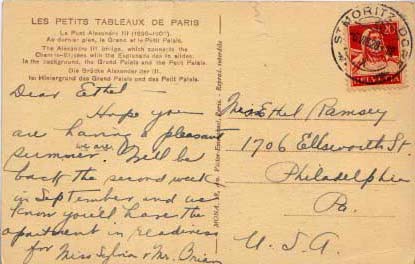 LES PETITS TABLEAUX DE PARIS
Le Pont Alexandre III (1896-1901).
Au dernier plan, le Grand et le Petit Palais.
The Alexandre III bridge, which connects the
Champs-Elysées with the Esplanade des Invalides.
In the background, the Grand Palais and the Petit Palais.
Die Brücke Alexander der III.
Im Hintergrund des Grand Palais und des Petit Palais.
Dear Ethel -
Hope you
are having a pleasant
summer. We'll be
we are
back the second week
in September and we
know you'll have the
apartment in readiness
for Miss Sylvia & Mr. Brian
A. MONA, Victor Paris - Reprod. interdite
ST. MORITZ DORF
20
HELVETIA
Miss Ethel Ramsey
1706 Ellsworth St.
Philadelphia
Pa.
U. S. A.